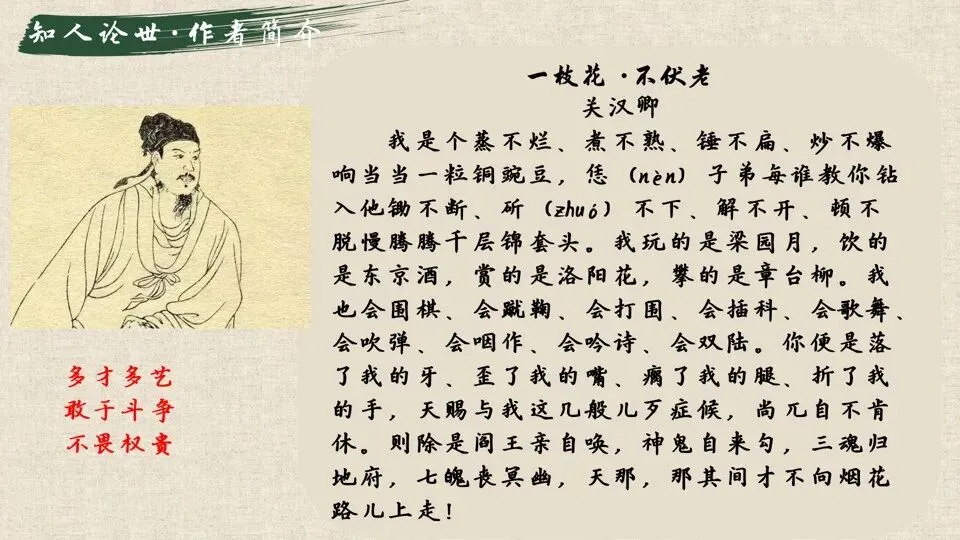 知人论世·作者简介
一枝花·不伏老
关汉卿
我是个蒸不烂、煮不熟、锤不扁、炒不爆
响当当一粒铜豌豆，恁（nèn）子弟每谁教你钻
入他锄不断、斫（zhuó）不下、解不开、顿不
脱慢腾腾千层锦套头。我玩的是梁园月，饮的
是东京酒，赏的是洛阳花，攀的是章台柳。我
也会围棋、会蹴鞠、会打围、会插科、会歌舞、
会吹弹、会咽作、会吟诗、会双陆。你便是落
了我的牙、歪了我的嘴、瘸了我的腿、折了我
的手，天赐与我这几般儿歹症候，尚兀自不肯
休。则除是阎王亲自唤，神鬼自来勾，三魂归
地府，七魄丧冥幽，天那，那其间才不向烟花
路儿上走！
多才多艺
敢于斗争
不畏权贵